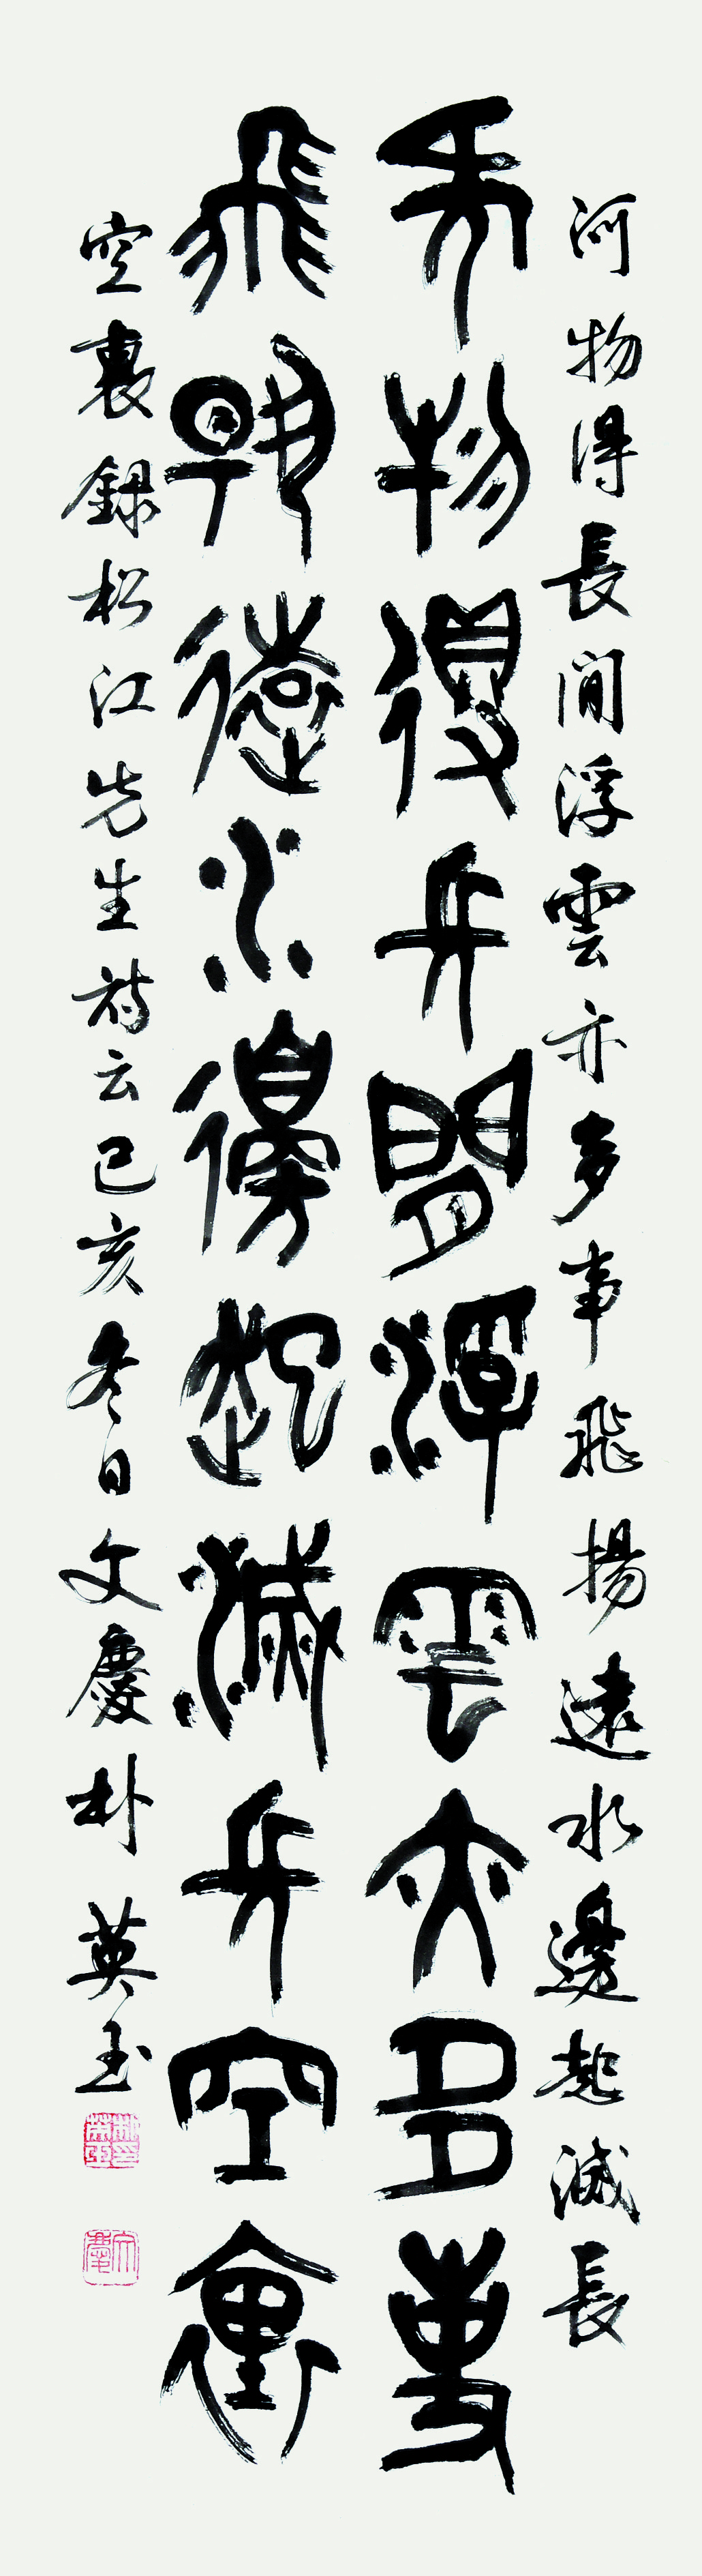 何物得長閒浮雲亦多事飛揚遠水邊起滅長
何物得長閒浮雲亦多事
飛揚遠水邊起滅長空裏
空裏録松江先生詩云己亥冬日文慶朴英玉
文慶